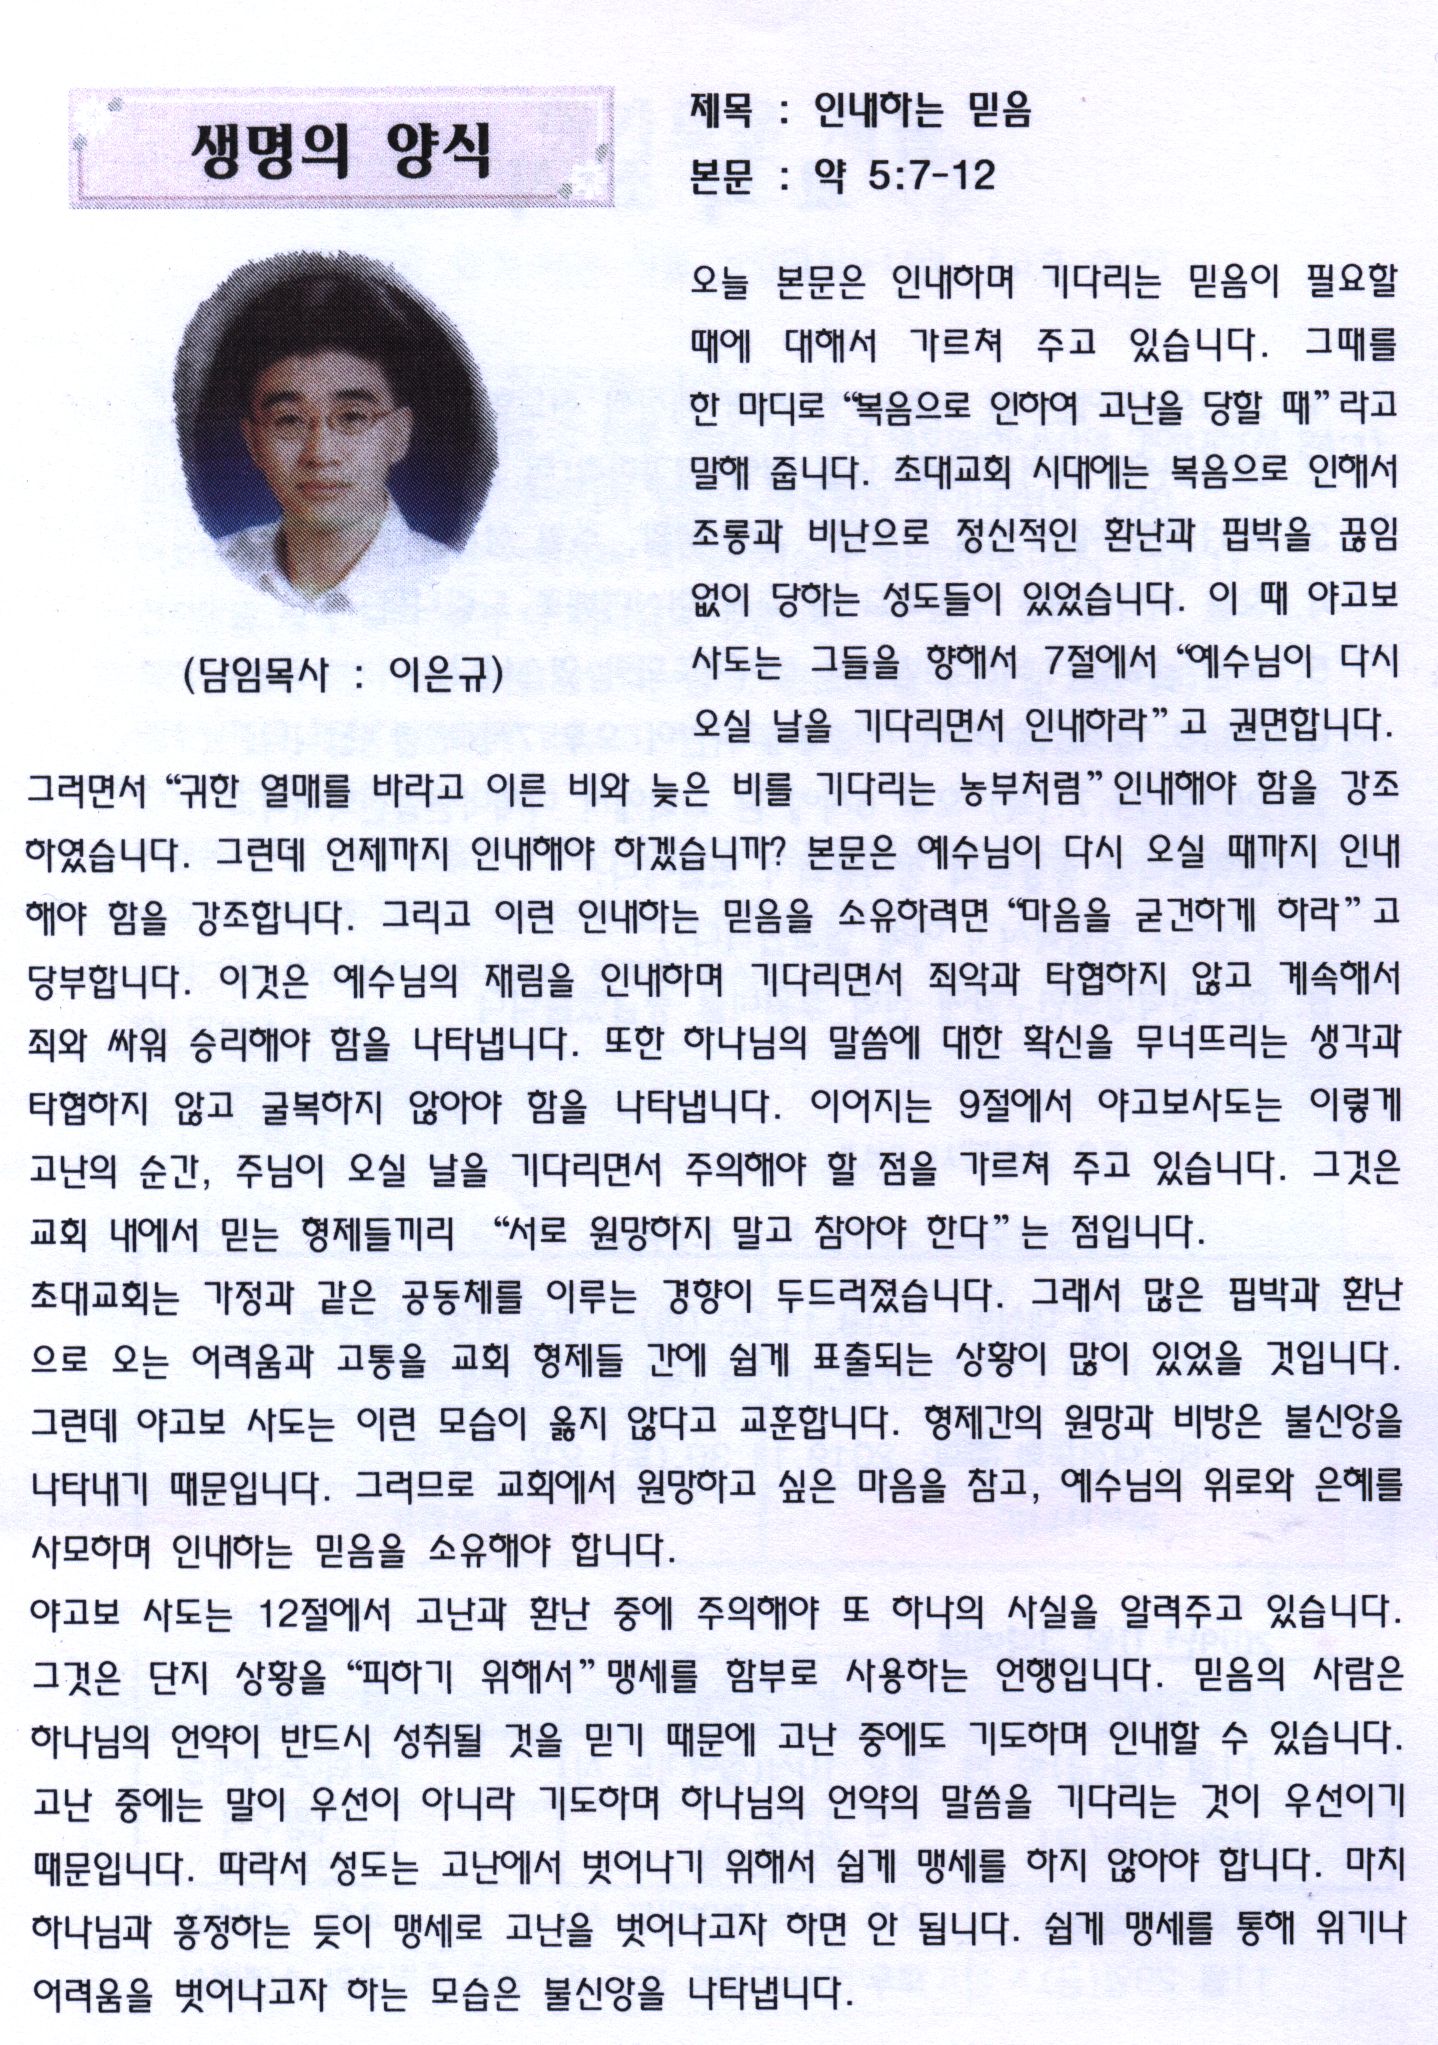 생명의 양식
제목 : 인내하는 믿음
본문 : 약 5:7-12
(담임목사 : 이은규)
오늘 본문은 인내하며 기다리는 믿음이 필요할
때에 대해서 가르쳐 주고 있습니다. 그때를
한 마디로 “복음으로 인하여 고난을 당할 때”라고
말해 줍니다. 초대교회 시대에는 복음으로 인해서
조롱과 비난으로 정신적인 환난과 핍박을 끊임
없이 당하는 성도들이 있었습니다. 이 때 야고보
사도는 그들을 향해서 7절에서 “예수님이 다시
오실 날을 기다리면서 인내하라”고 권면합니다.
그러면서 “귀한 열매를 바라고 이른 비와 늦은 비를 기다리는 농부처럼”인내해야 함을 강조
하였습니다. 그런데 언제까지 인내해야 하겠습니까? 본문은 예수님이 다시 오실 때까지 인내
해야 함을 강조합니다. 그리고 이런 인내하는 믿음을 소유하려면 “마음을 굳건하게 하라”고
당부합니다. 이것은 예수님의 재림을 인내하며 기다리면서 죄악과 타협하지 않고 계속해서
죄와 싸워 승리해야 함을 나타냅니다. 또한 하나님의 말씀에 대한 확신을 무너뜨리는 생각과
타협하지 않고 굴복하지 않아야 함을 나타냅니다. 이어지는 9절에서 야고보사도는 이렇게
고난의 순간, 주님이 오실 날을 기다리면서 주의해야 할 점을 가르쳐 주고 있습니다. 그것은
교회 내에서 믿는 형제들끼리 “서로 원망하지 말고 참아야 한다”는 점입니다.
초대교회는 가정과 같은 공동체를 이루는 경향이 두드러졌습니다. 그래서 많은 핍박과 환난
으로 오는 어려움과 고통을 교회 형제들 간에 쉽게 표출되는 상황이 많이 있었을 것입니다.
그런데 야고보 사도는 이런 모습이 옳지 않다고 교훈합니다. 형제간의 원망과 비방은 불신앙을
나타내기 때문입니다. 그러므로 교회에서 원망하고 싶은 마음을 참고, 예수님의 위로와 은혜를
사모하며 인내하는 믿음을 소유해야 합니다.
야고보 사도는 12절에서 고난과 환난 중에 주의해야 또 하나의 사실을 알려주고 있습니다.
그것은 단지 상황을 “피하기 위해서”맹세를 함부로 사용하는 언행입니다. 믿음의 사람은
하나님의 언약이 반드시 성취될 것을 믿기 때문에 고난 중에도 기도하며 인내할 수 있습니다.
고난 중에는 말이 우선이 아니라 기도하며 하나님의 언약의 말씀을 기다리는 것이 우선이기
때문입니다. 따라서 성도는 고난에서 벗어나기 위해서 쉽게 맹세를 하지 않아야 합니다. 마치
하나님과 흥정하는 듯이 맹세로 고난을 벗어나고자 하면 안 됩니다. 쉽게 맹세를 통해 위기나
어려움을 벗어나고자 하는 모습은 불신앙을 나타냅니다.